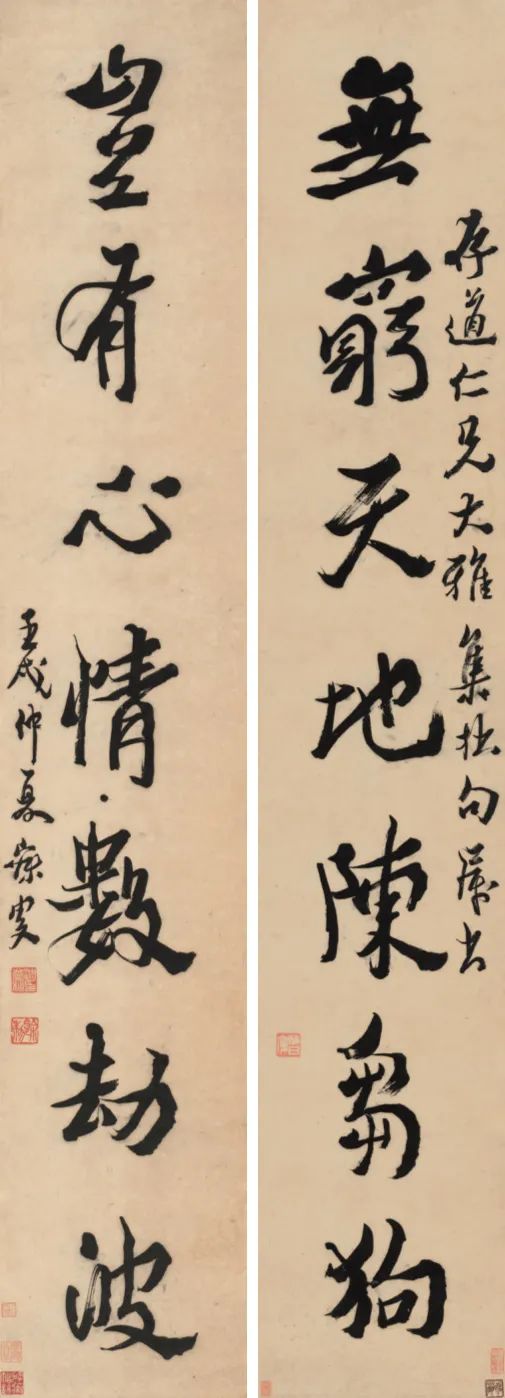 存道仁兄大雅集拙句屬書
無窮天地陳芻狗
豈有心情數劫波
壬戌仲夏寐叟